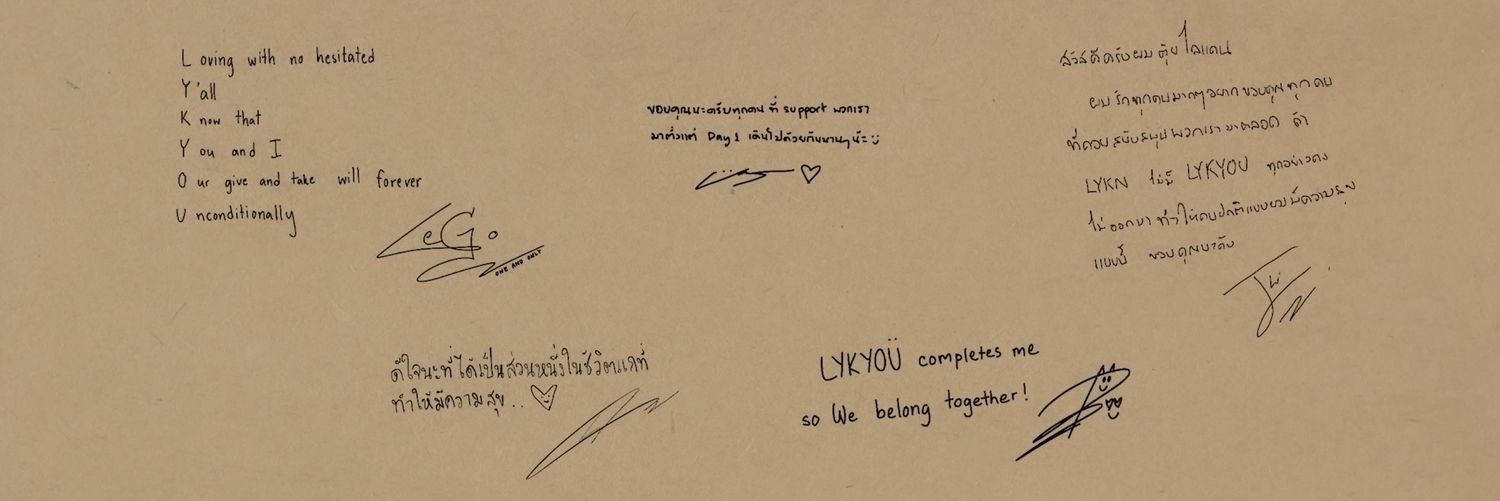 Loving with no hesitated
Y'all
Know that
You and I
Our give and take will forever
Unconditionally
LeGo
ONE AND ONLY
ขอบคุณนะครับทุกคนที่ support พวกเรา
มาตั้งแต่ Day 1 เดินไปด้วยกันนานๆน้ะ
สวัสดีครับผม ตุ้ย ไลแคน
ผมรักทุกคนมากๆอยากขอบคุณทุกคน
ที่คอยสนับสนุนพวกเรามาตลอด ถ้า
LYKN ไม่มี LYKYOU ทุกอย่างคง
ไม่ออกมา ทำให้คนปกติแบบผมมีความสุข
แบบนี้ ขอบคุณนะครับ
ดีใจนะที่ได้เป็นส่วนหนึ่งในชีวิตแกที่
ทำให้มีความสุข..
LYKYOÜ completes me
so We belong together!